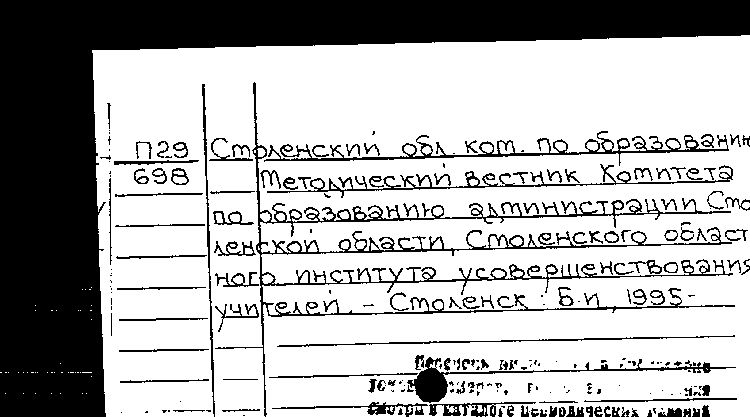 П29 Смоленский обл. ком. по образованию
698 Методический вестник Комитета
по образованию администрации Смо
ленской области, Смоленского област
ного института усовершенствования
учителей. – Смоленск : Б.и., 1995-
Перечень
смотри в каталоге периодических изданий